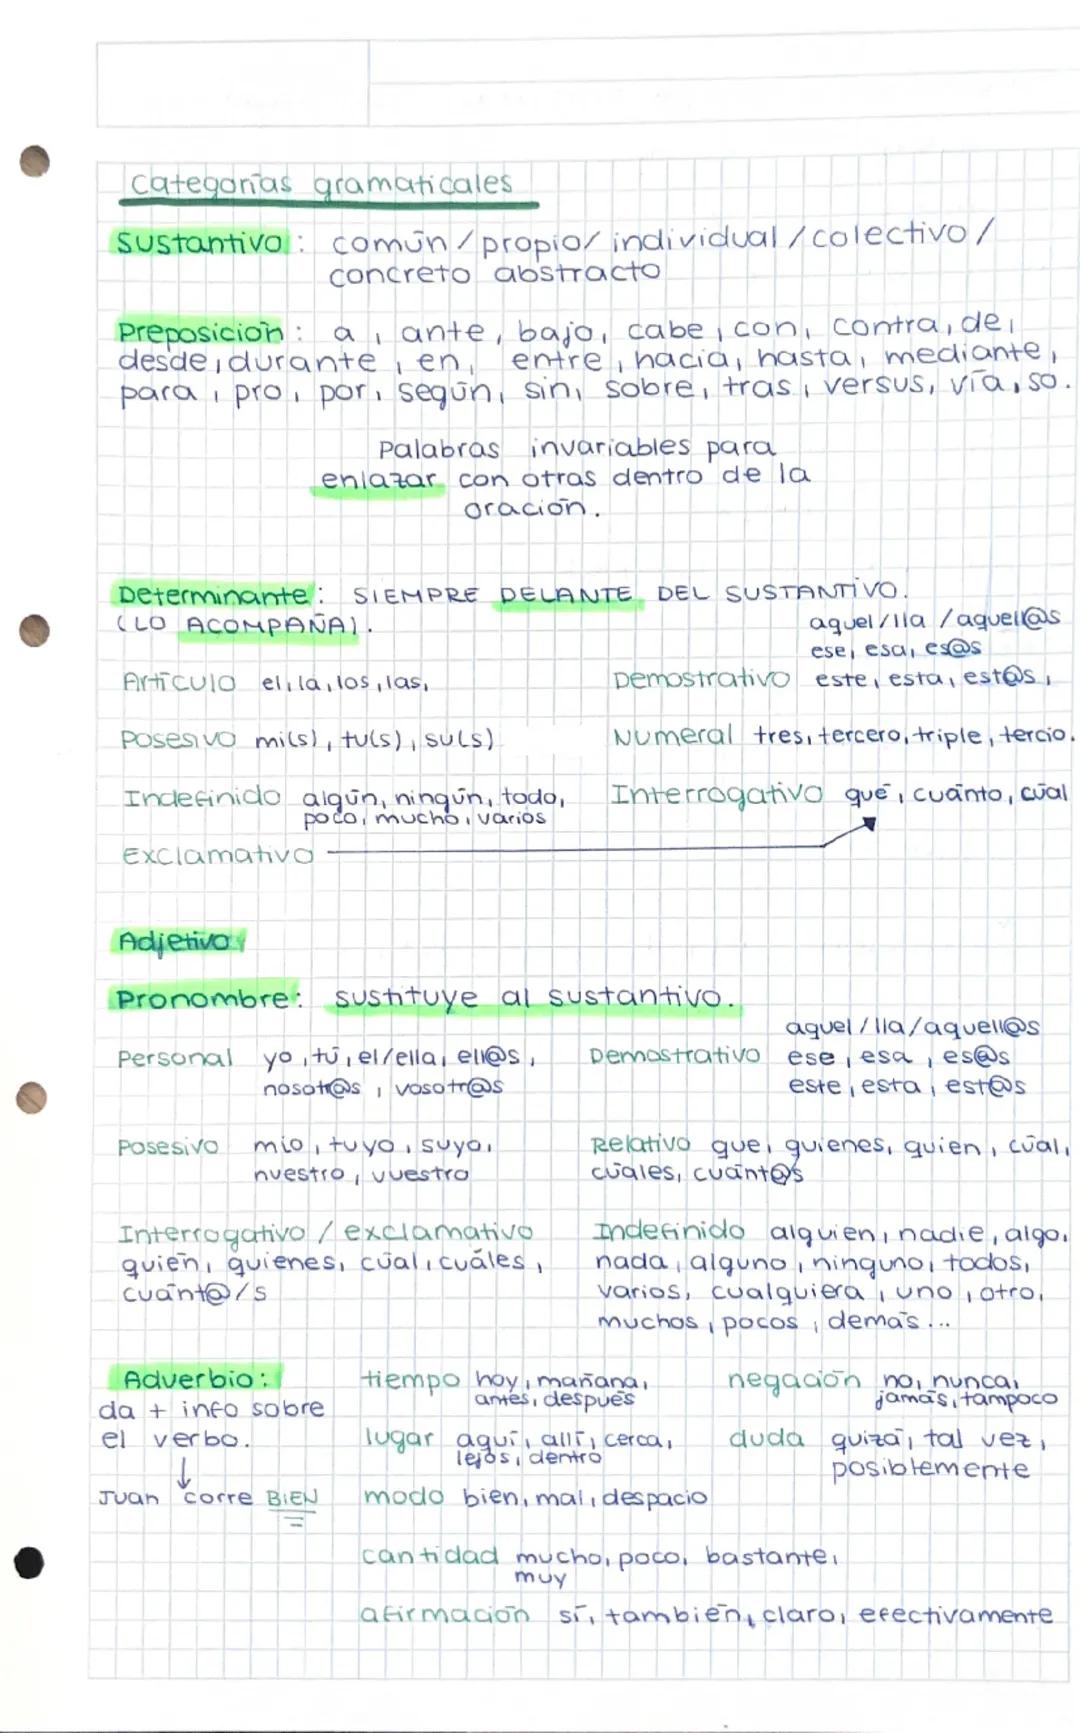 Categorías gramaticales
Sustantivo: común / propio / individual / colectivo /
concreto abstracto
Preposición: a, ante, bajo, cabe, con, contra, de,
desde, durante, en, entre, hacia, hasta, mediante,
para, pro, por, según, sin, sobre, tras, versus, vía, so.
Palabras invariables para
enlazar con otras dentro de la
oración.
Determinante: SIEMPRE DELANTE DEL SUSTANTIVO.
(LO ACOMPAÑA).
aquel/lla /aquell@s
ese, esa, es@s
Artículo el, la, los, las,
Demostrativo este, esta, est@s,
Posesivo mi(s), tu(s), su(s)
Numeral tres, tercero, triple, tercio.
Indefinido algún, ningún, todo,
poco, mucho, varios
Interrogativo qué, cuánto, cúal
Exclamativo
Adjetivo:
Pronombre: sustituye al sustantivo.
Personal yo, tú, el/ella, ell@s,
nosotr@s, vosotr@s
aquel/lla/aquell@s
Demostrativo ese, esa, es@s
este, esta, est@s
Posesivo mío, tuyo, suyo,
nuestro, vuestro
Relativo que, quienes, quien, cúal,
cúales, cuánt@s
Interrogativo / exclamativo
quién, quienes, cúal, cuáles,
cuánt@/s
Indefinido alguien, nadie, algo,
nada, alguno, ninguno, todos,
varios, cualquiera, uno, otro,
muchos, pocos, demás...
Adverbio:
da + info sobre
el verbo.
Juan corre BIEN
tiempo hoy, mañana,
antes, después
negación no, nunca,
jamás, tampoco
lugar aquí, allí, cerca,
lejos, dentro
duda quizá, tal vez,
posiblemente
modo bien, mal, despacio
cantidad mucho, poco, bastante,
muy
afirmación sí, también, claro, efectivamente